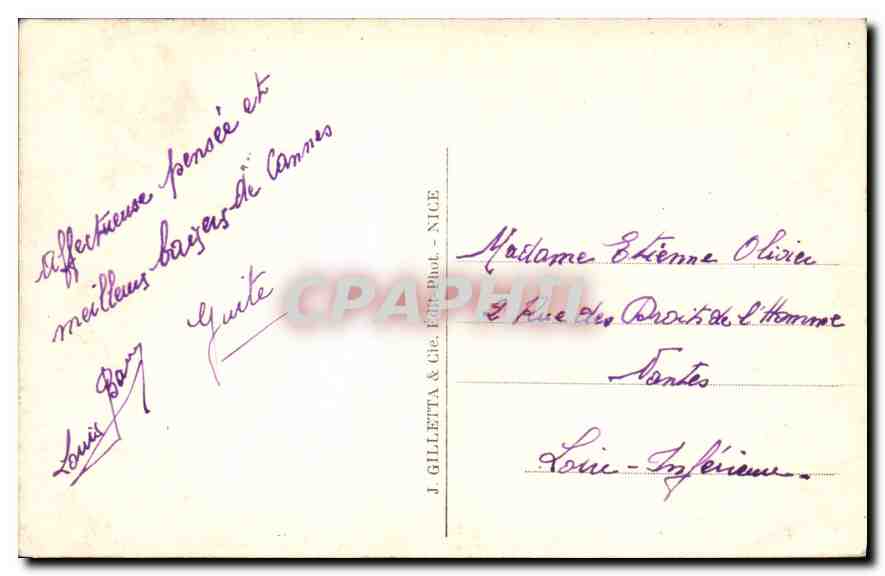 affectueuse pensée et
meilleurs baisers de Cannes
Guite
Louis
J. GILLETTA & Cie, Edit-Phot. - NICE
CPARAMA
Madame Etienne Olivier
2 Rue des Droits de l'Homme
Nantes
Loire-Inférieure